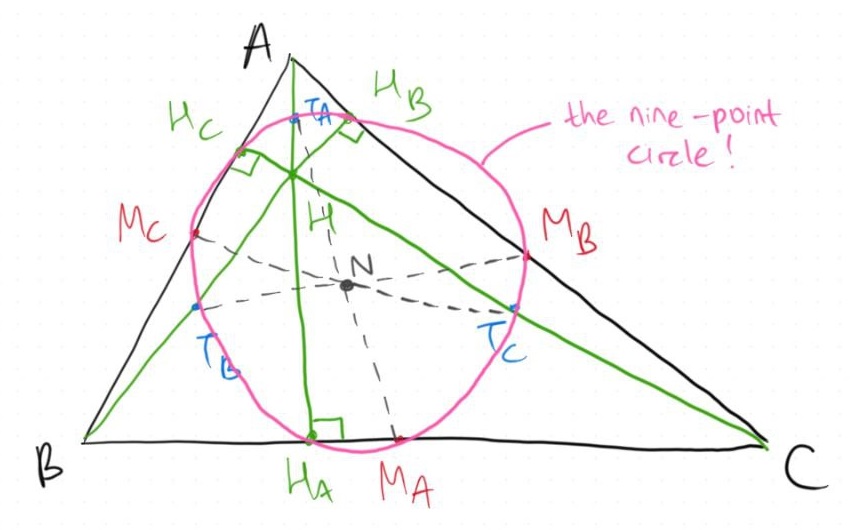 A
H_B
T_A
H_C
the nine-point
circle!
H
M_C
M_B
N
T_B
T_C
B
H_A
M_A
C